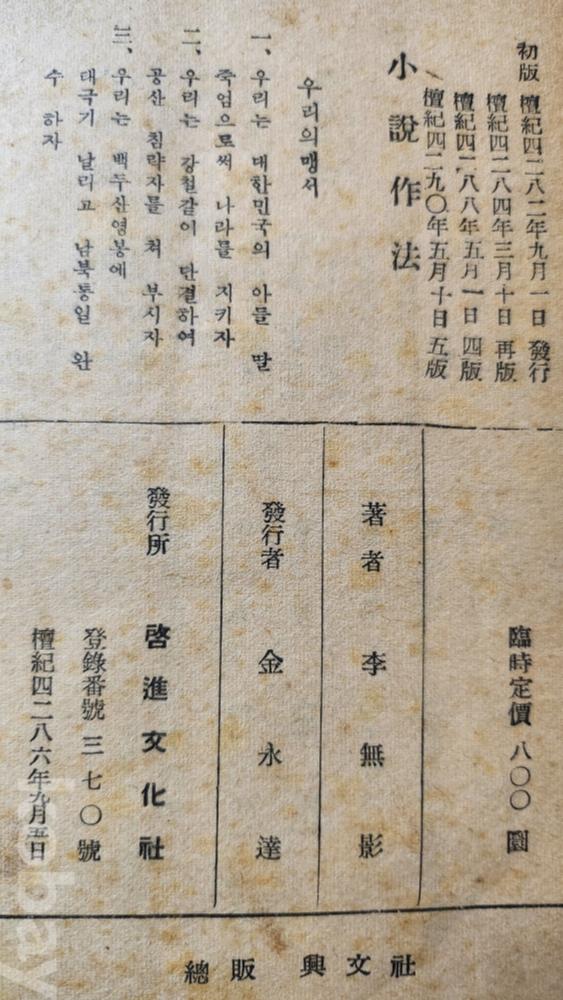 初版 檀紀四二八二年九月一日 發行
檀紀四二八四年三月十日 再版
檀紀四二八八年五月一日 四版
檀紀四二九〇年五月十日 五版
小說作法
우리의맹서
一、우리는 대한민국의 아들 딸
죽엄으로써 나라를 지키자
二、우리는 강철같이 단결하여
공산 침략자를 처 부시자
三、우리는 백두산영봉에
태극기 날리고 남북통일 완
수 하자
臨時定價 八〇〇 圜
著者 李無影
發行者 金永達
發行所 啓進文化社
登錄番號 三七〇號
檀紀四二八六年九月五日
總販 興文社
ebay